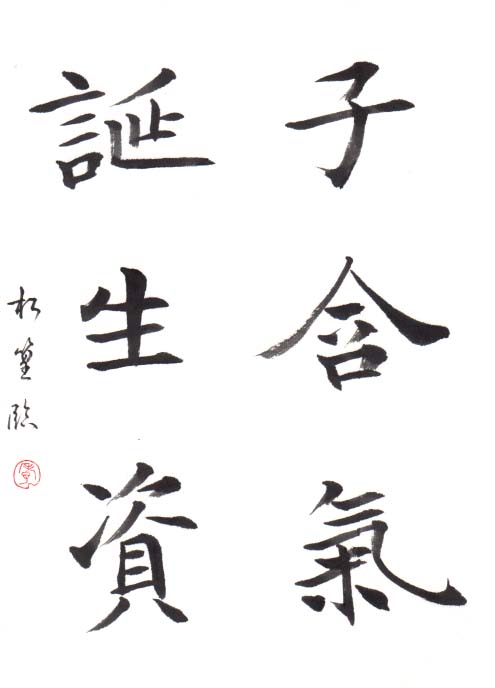 子含氣
誕生資
松臨